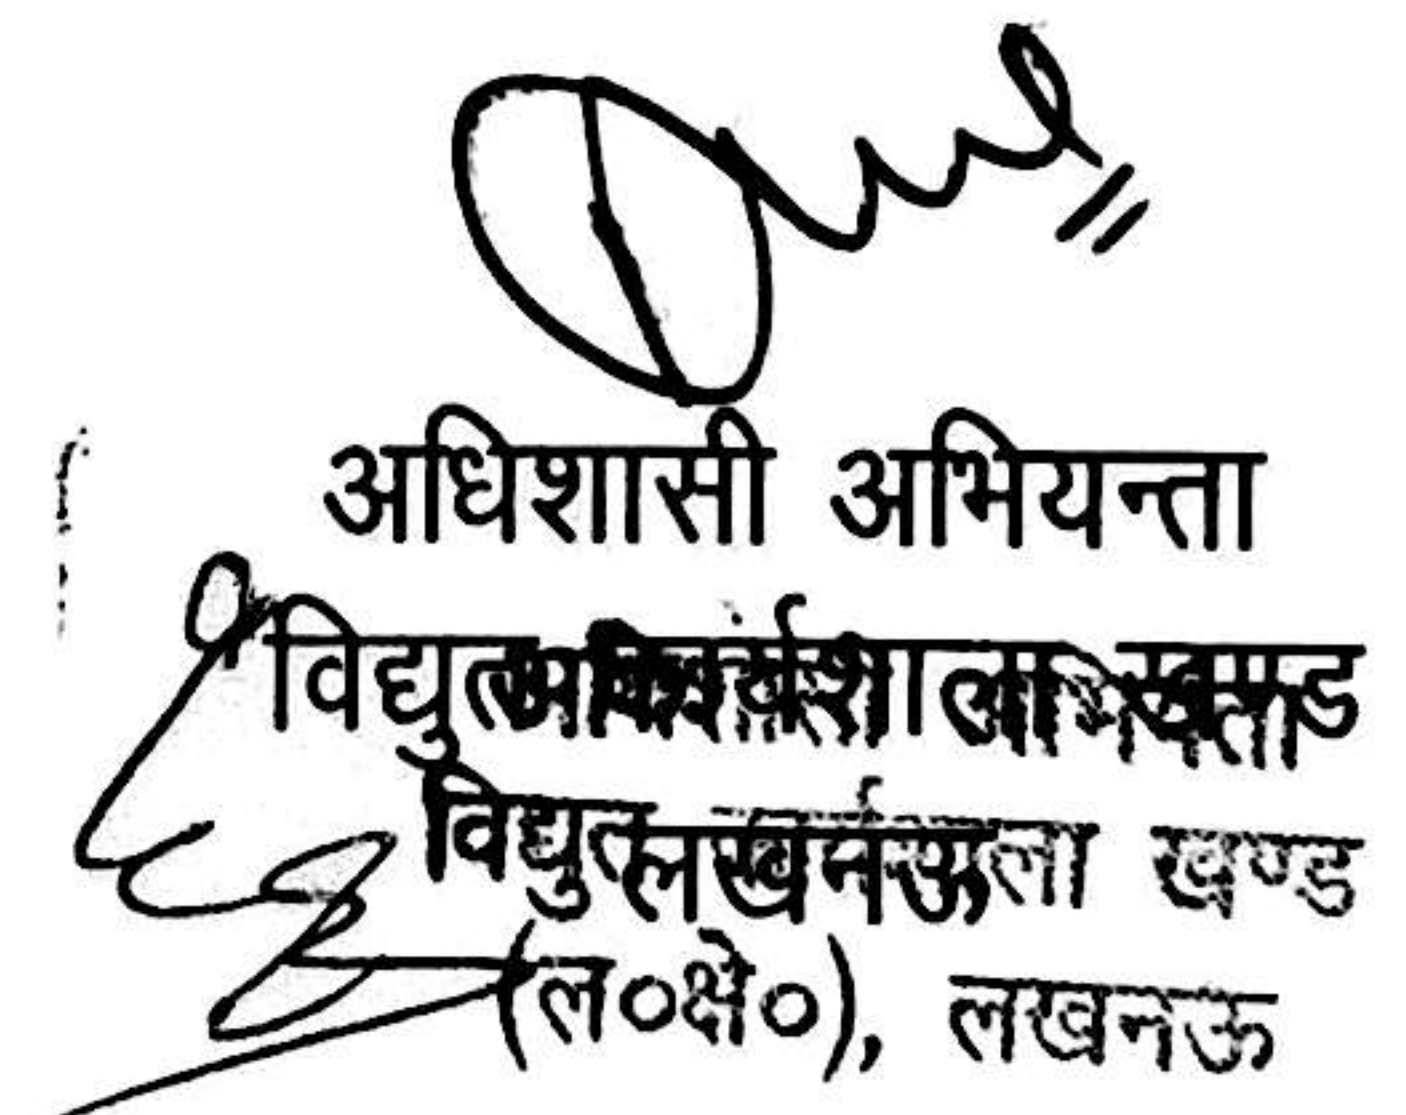 अधिशासी अभियन्ता
विद्युत कार्यशाला खण्ड
लखनऊ
अधिशासी अभियन्ता
विद्युत कार्यशाला खण्ड
(ल०क्षे०), लखनऊ